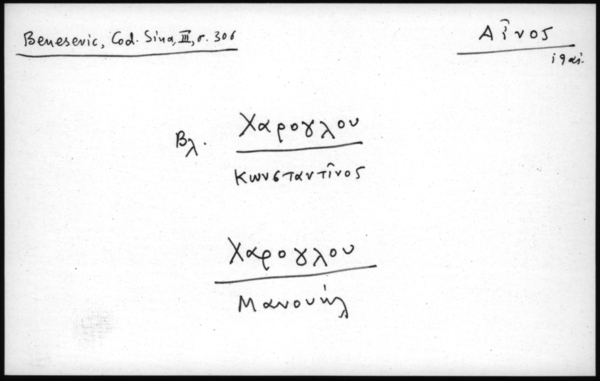 Benesevic, Cod. Sina, III, σ. 306
Αἶνος
19 αἰ.
Βλ. Χαρογλου
Κωνσταντῖνος
Χαρογλου
Μανουήλ